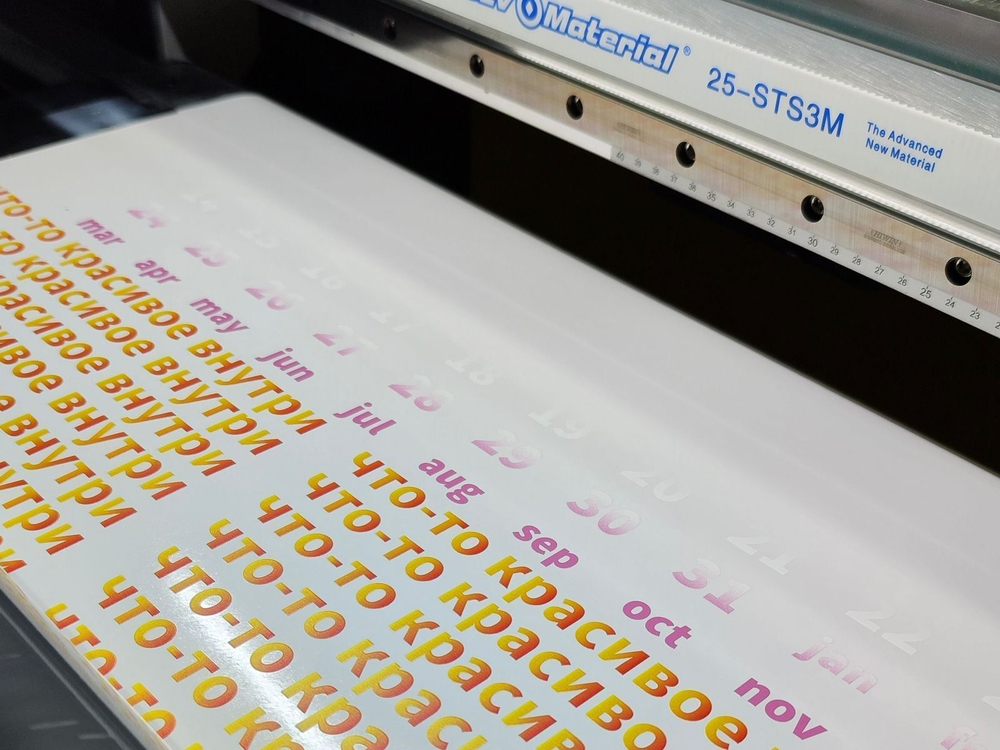 Material®
25-STS3M
The Advanced
New Material
40 39 38 37 36 35 34 33 32 31 30 29 28 27 26 25 24 23
HIWIN
18 19 20 21 22
24 25 26 27 28 29 30 31 jan
mar apr may jun jul aug sep oct nov
что-то красивое внутри
что-то красивое внутри
красивое внутри
внутри
внутри
что-то красивое
что-то красивое
что-то красив
что-то крас
что-то кра
что-то к
что-то